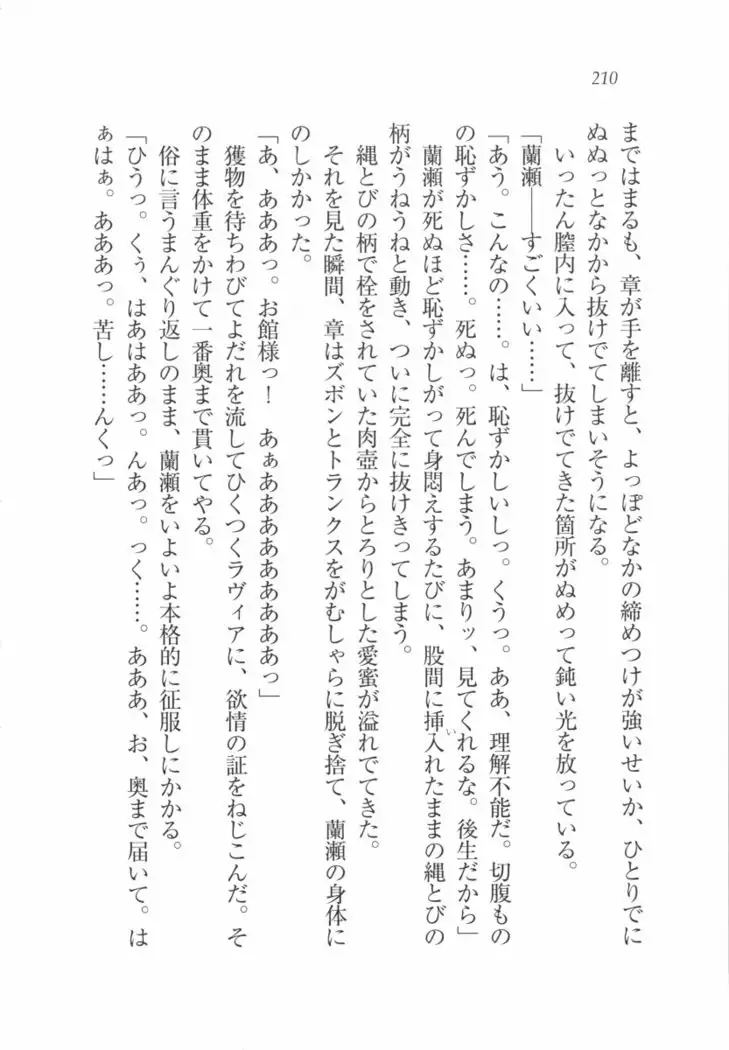 210
まではまるも、章が手を離すと、よっぽどなかの締めつけが強いせいか、ひとりでに
ぬぬっとなかから抜けでてしまいそうになる。
いったん膣内に入って、抜けでてきた箇所がぬめって鈍い光を放っている。
「蘭瀬――すごくいい……」
「あう。こんなの……。は、恥ずかしいしっ。くうっ。ああ、理解不能だ。切腹もの
の恥ずかしさ……。死ぬっ。死んでしまう。あまりッ、見てくれるな。後生だから」
蘭瀬が死ぬほど恥ずかしがって身悶えするたびに、股間に挿入れたままの縄とびの
い
柄がうねうねと動き、ついに完全に抜けきってしまう。
縄とびの柄で栓をされていた肉壺からとろりとした愛蜜が溢れでてきた。
それを見た瞬間、章はズボンとトランクスをがむしゃらに脱ぎ捨て、蘭瀬の身体に
のしかかった。
「あ、あああっ。お館様っ！　あぁあああああああああっ」
獲物を待ちわびてよだれを流してひくつくラヴィアに、欲情の証をねじこんだ。そ
のまま体重をかけて一番奥まで貫いてやる。
俗に言うまんぐり返しのまま、蘭瀬をいよいよ本格的に征服しにかかる。
「ひうっ。くぅ、はあはああっ。んあっ。っく……。あああ、お、奥まで届いて。は
ぁはぁ。あああっ。苦し……んくっ」